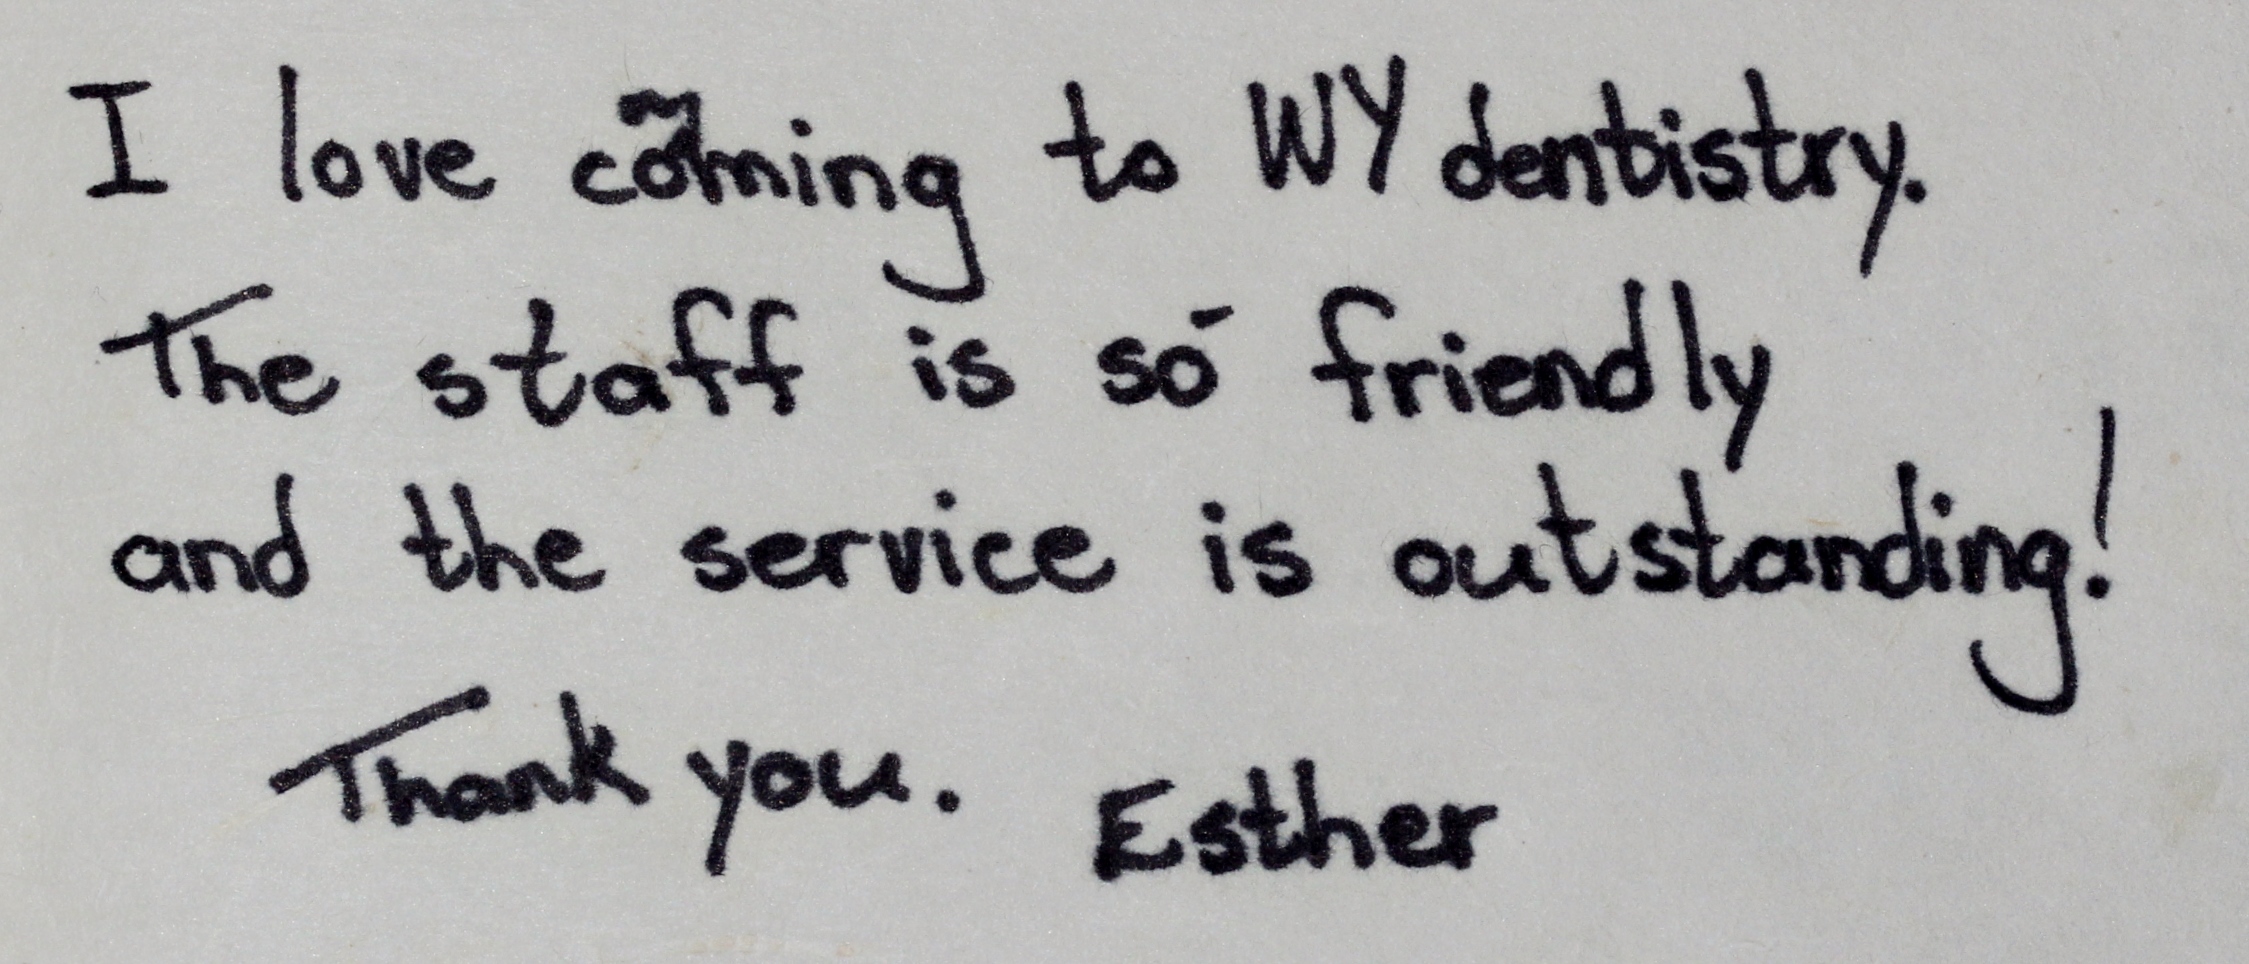 I love coming to WY dentistry.
The staff is so friendly
and the service is outstanding!
Thank you. Esther